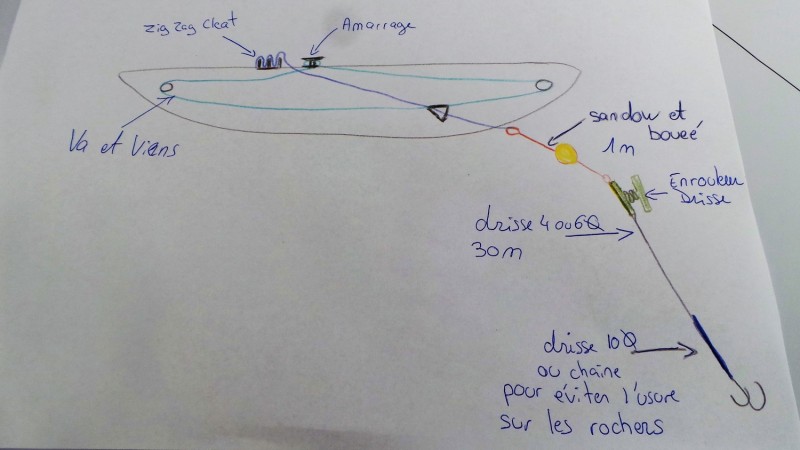 zig zag cleat
Amarrage
Va et Viens
sandow et
boueé
1m
Enrouleur
Drisse
drisse 4 ou 6Ø
30m
drisse 10Ø
ou chaine
pour éviter l'usure
sur les rochers